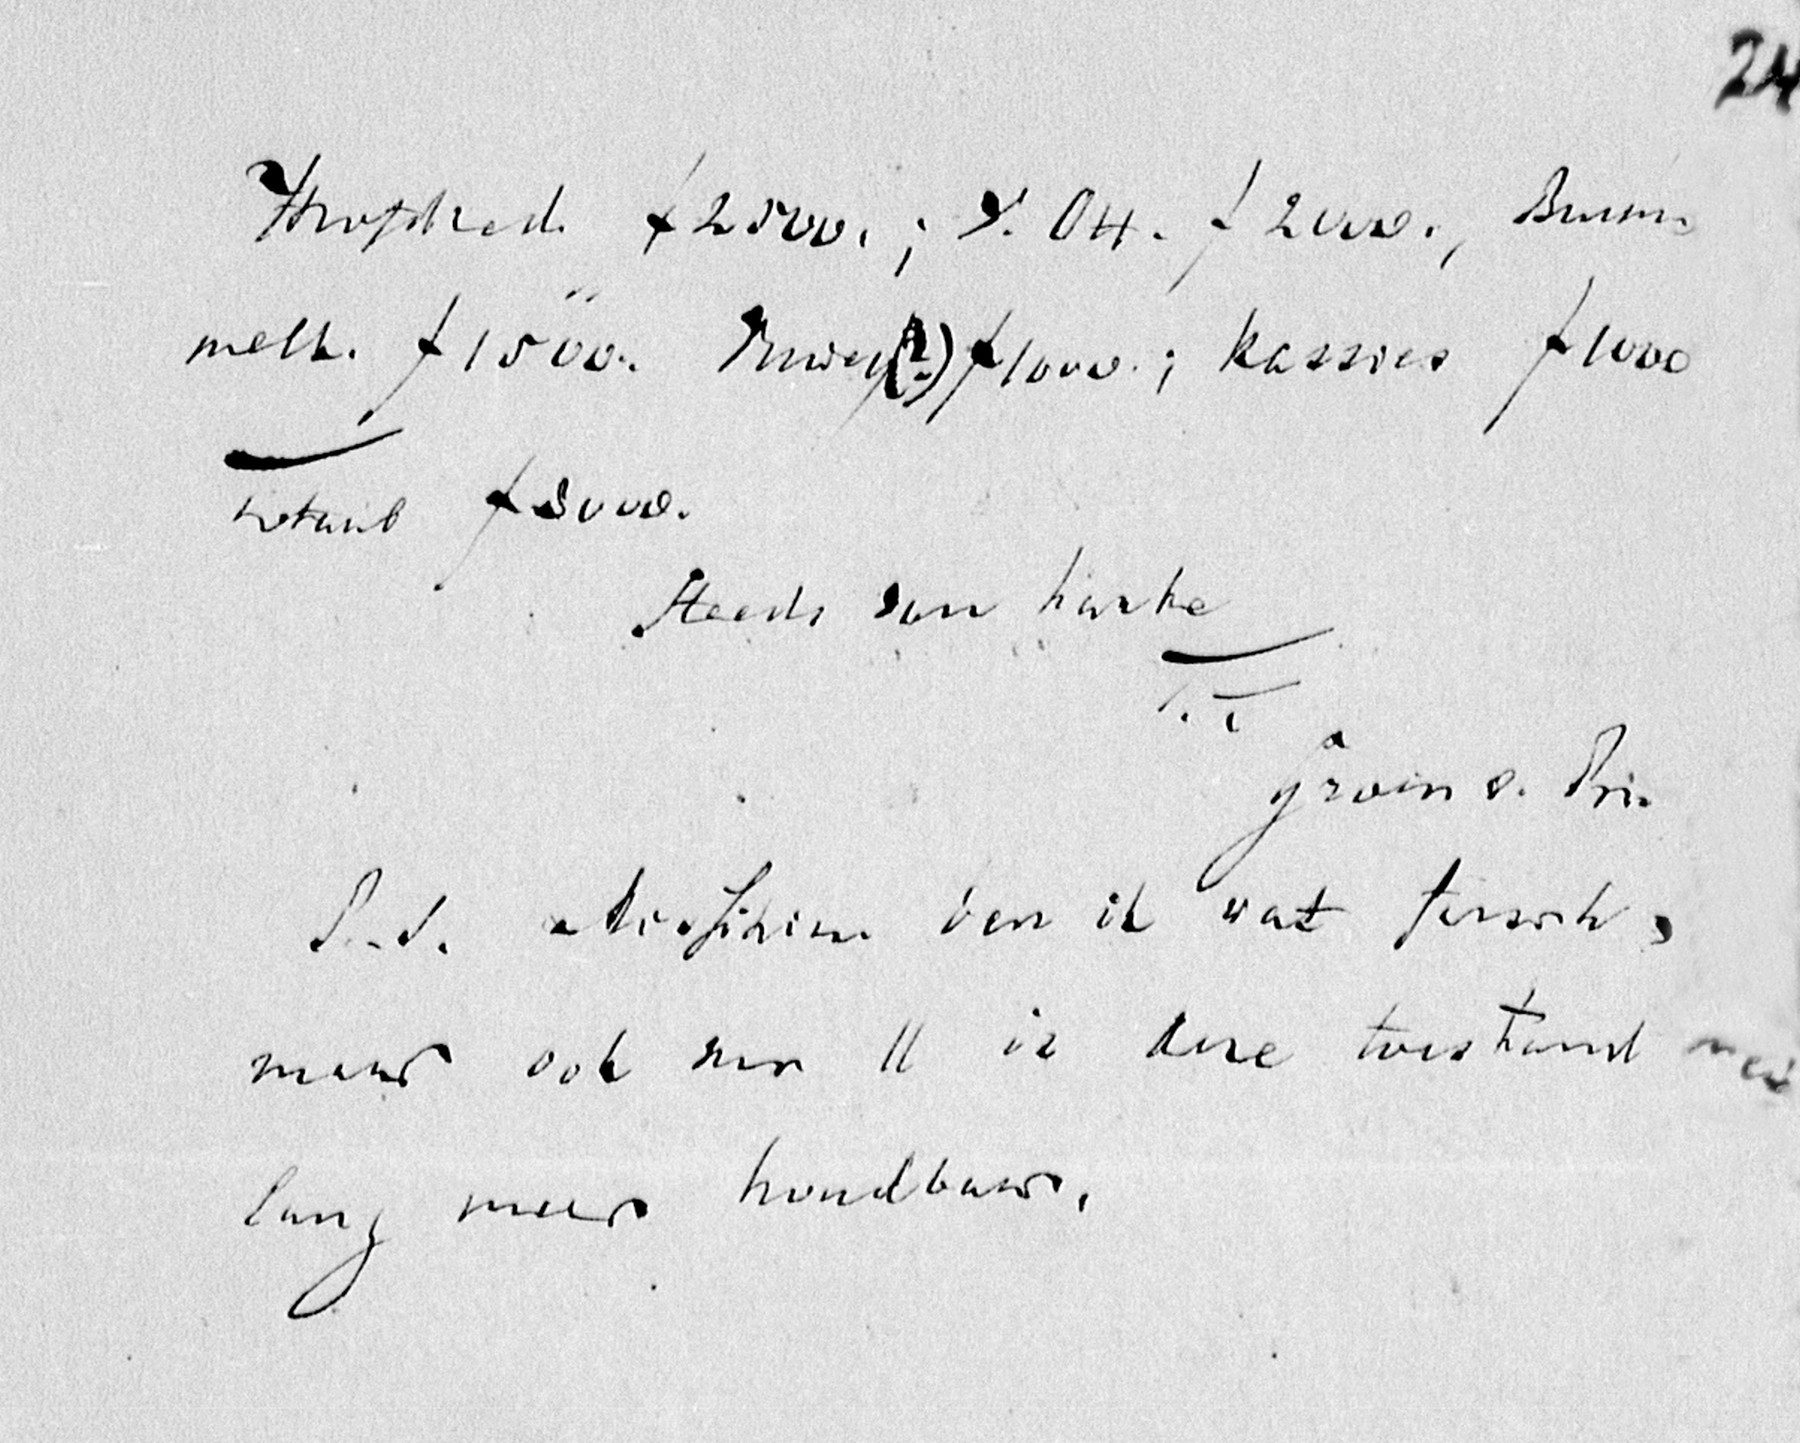 24
Hoofdred. f 2500.; v. Ott. f 2000., Brum
melk. f 1500. (?) f 1000.; kassier f 1000
totaal f 8000.
Steeds van harte
t.t.
Groen v. Pri.
P.S. Misschien ben ik wat forsch,
maar ook nu is deze toestand niet
lang meer houdbaar.